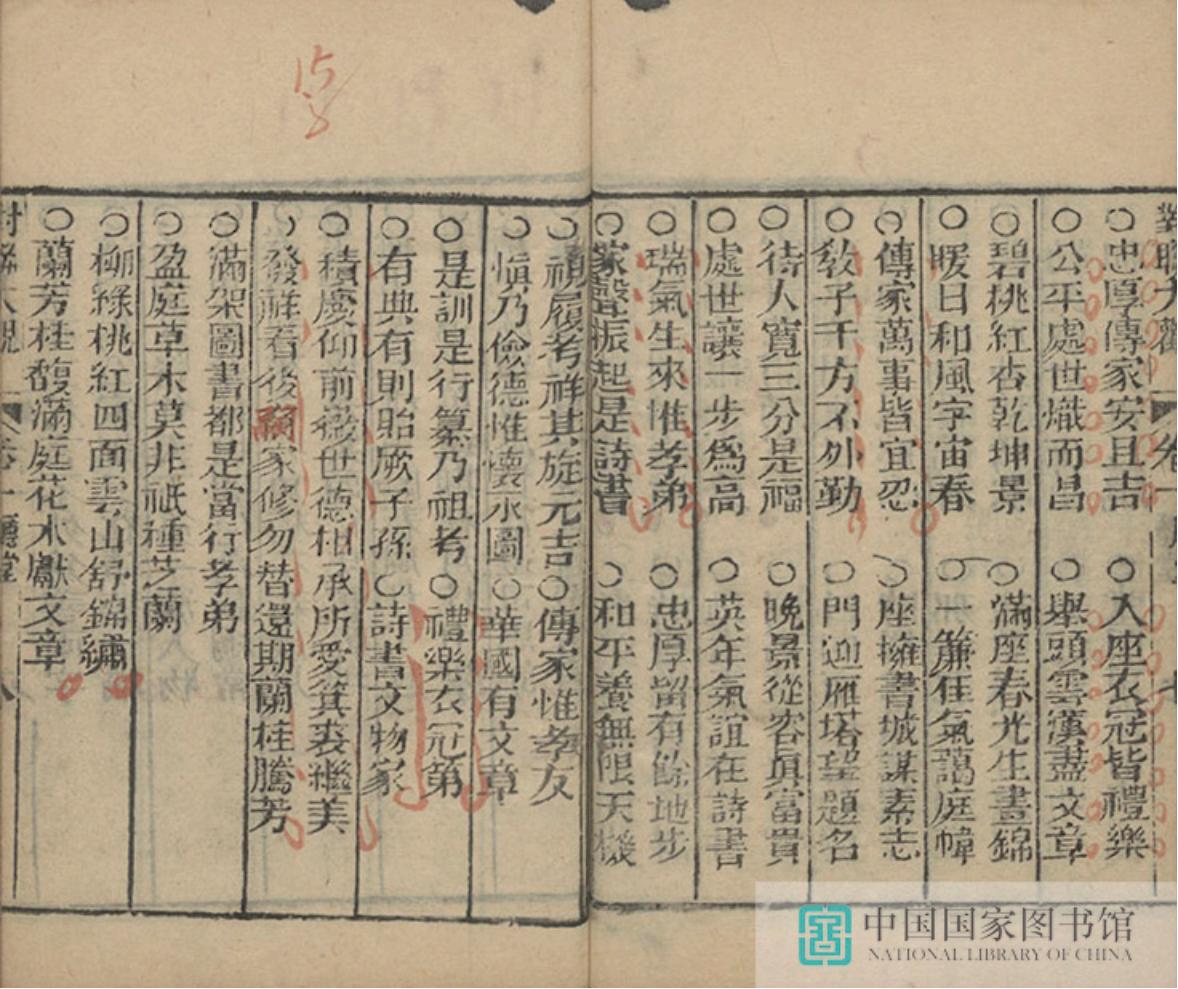 對聯大觀 卷一
○忠厚傳家安且吉 ○入座衣冠皆禮樂
○公平處世熾而昌 ○舉頭雲漢盡文章
○碧桃紅杏乾坤景 ○滿座春光生晝錦
○暖日和風宇宙春 ○一簾佳氣藹庭幃
○傳家萬事皆宜忍 ○座擁書城謀素志
○教子千方不外勤 ○門迎雁塔望題名
○待人寬三分是福 ○晚景從容眞富貴
○處世讓一步爲高 ○英年氣誼在詩書
○瑞氣生來惟孝弟 ○忠厚留有餘地步
○家聲振起是詩書 ○和平養無限天機
○視履考祥其旋元吉 ○傳家惟孝友
○愼乃儉德惟懷永圖 ○華國有文章
○是訓是行纂乃祖考 ○禮樂衣冠第
○有典有則貽厥子孫 ○詩書文物家
○積慶仰前徽世德相承所愛箕裘繼美
○發祥看後嗣家修勿替還期蘭桂騰芳
○滿架圖書都是當行孝弟
○盈庭草木莫非祇種芝蘭
○柳綠桃紅四面雲山舒錦繡
○蘭芳桂馥滿庭花木獻文章
對聯大觀 卷一 廳堂 八
15
中国国家图书馆
NATIONAL LIBRARY OF CHINA